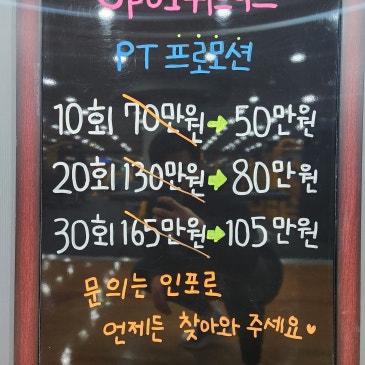 PT 프로모션
10회 70만원 → 50만원
20회 130만원 → 80만원
30회 165만원 → 105만원
문의는 인포로
언제든 찾아와 주세요